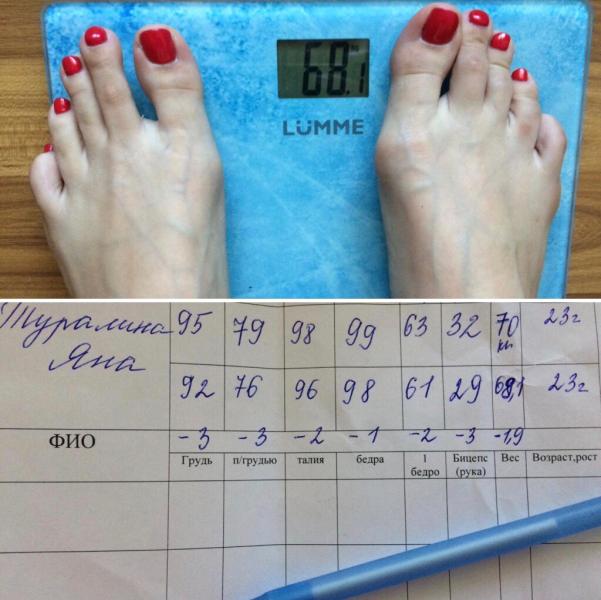 68.1
LÜMME
Туралина 95 79 98 99 63 32 70 кг 23г
Яна 92 76 96 98 61 29 68,1 23г
-3 -3 -2 -1 -2 -3 -1,9
ФИО Грудь п/грудью талия бедра 1 бедро Бицепс (рука) Вес Возраст,рост